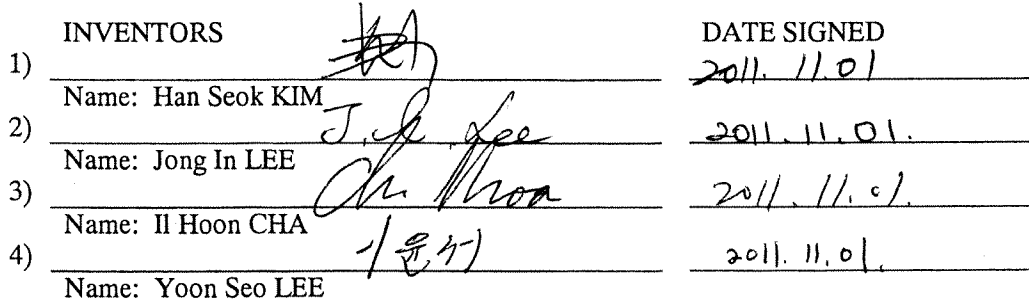 INVENTORS DATE SIGNED
1) 2011. 11.01
Name: Han Seok KIM
2) J.I. Lee 2011.11.01.
Name: Jong In LEE
3) 2011.11.01.
Name: Il Hoon CHA
4) 이윤서 2011.11.01.
Name: Yoon Seo LEE